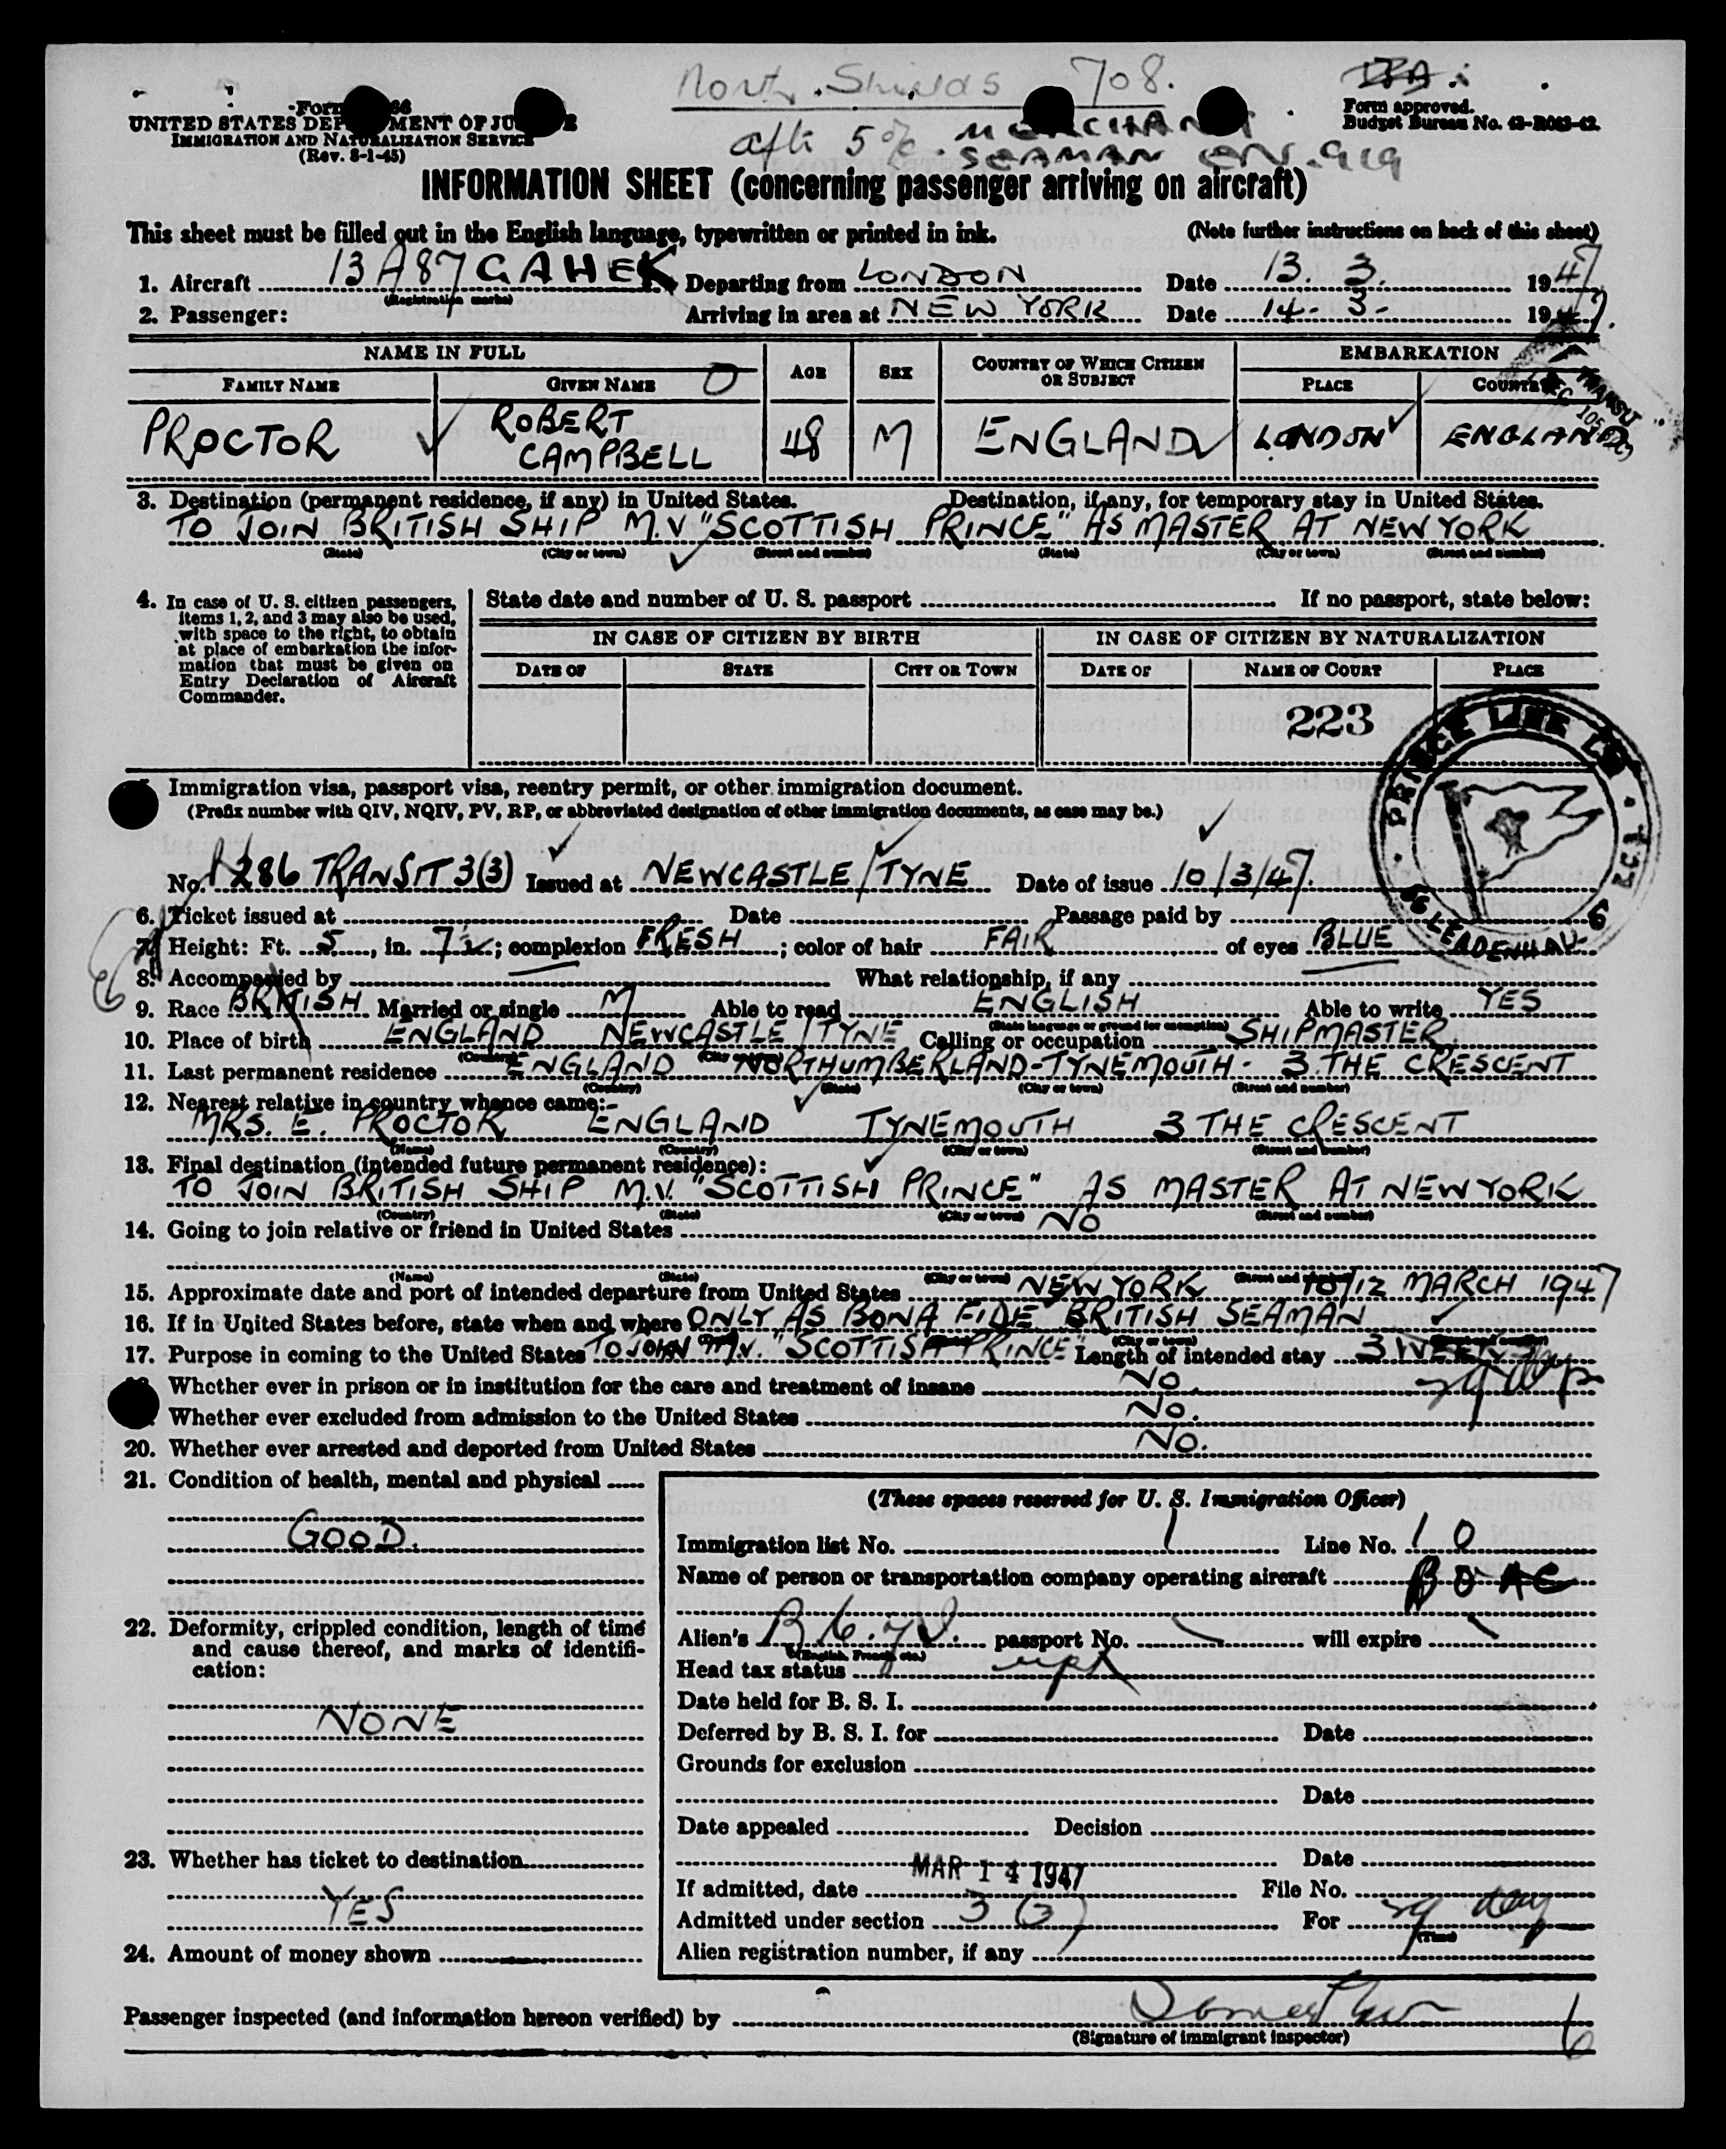 North Shields 708.
Form
UNITED STATES DEPARTMENT OF JUSTICE
IMMIGRATION AND NATURALIZATION SERVICE
(Rev. 8-1-45)
Form approved.
Budget Bureau No. 43-R063-42.
MERCHANT
SEAMAN
INFORMATION SHEET (concerning passenger arriving on aircraft)
This sheet must be filled out in the English language, typewritten or printed in ink. (Note further instructions on back of this sheet)
1. Aircraft 13 A 87 GAHEK Departing from LONDON Date 13. 3. 1947
(Registration marks)
2. Passenger: Arriving in area at NEW YORK Date 14. 3. 1947.
NAME IN FULL AGE SEX COUNTRY OF WHICH CITIZEN OR SUBJECT EMBARKATION
FAMILY NAME GIVEN NAME PLACE COUNTRY
PROCTOR ROBERT CAMPBELL 48 M ENGLAND LONDON ENGLAND
TRANSIT
3. Destination (permanent residence, if any) in United States. Destination, if any, for temporary stay in United States.
TO JOIN BRITISH SHIP M.V. "SCOTTISH PRINCE" AS MASTER AT NEW YORK
(State) (City or town) (Street and number) (State) (City or town) (Street and number)
4. In case of U. S. citizen passengers, items 1, 2, and 3 may also be used, with space to the right, to obtain at place of embarkation the information that must be given on Entry Declaration of Aircraft Commander.
State date and number of U. S. passport If no passport, state below:
IN CASE OF CITIZEN BY BIRTH IN CASE OF CITIZEN BY NATURALIZATION
DATE OF STATE CITY OR TOWN DATE OF NAME OF COURT PLACE
223
PRINCE LINE LTD
LEADENHALL
Immigration visa, passport visa, reentry permit, or other immigration document.
(Prefix number with QIV, NQIV, PV, RP, or abbreviated designation of other immigration documents, as case may be.)
No. 286 TRANSIT 3(3) Issued at NEWCASTLE/TYNE Date of issue 10/3/47.
6. Ticket issued at Date Passage paid by
7. Height: Ft. 5, in. 7½; complexion FRESH; color of hair FAIR of eyes BLUE
8. Accompanied by What relationship, if any
9. Race BRITISH Married or single M Able to read ENGLISH Able to write YES
(State language or ground for exemption)
10. Place of birth ENGLAND NEWCASTLE/TYNE Calling or occupation SHIPMASTER
(Country) (City or town)
11. Last permanent residence ENGLAND NORTHUMBERLAND-TYNEMOUTH- 3. THE CRESCENT
(Country) (State) (City or town) (Street and number)
12. Nearest relative in country whence came:-
MRS. E. PROCTOR ENGLAND TYNEMOUTH 3 THE CRESCENT
(Name) (Country) (City or town) (Street and number)
13. Final destination (intended future permanent residence):
TO JOIN BRITISH SHIP M.V. "SCOTTISH PRINCE" AS MASTER AT NEW YORK
(Country) (State) (City or town) (Street and number)
14. Going to join relative or friend in United States NO
(Name) (State) (City or town) (Street and number)
15. Approximate date and port of intended departure from United States NEW YORK 10/12 MARCH 1947
16. If in United States before, state when and where ONLY AS BONA FIDE BRITISH SEAMAN
(City or town)
17. Purpose in coming to the United States TO JOIN M.V. "SCOTTISH PRINCE" Length of intended stay 3 WEEKS
Whether ever in prison or in institution for the care and treatment of insane NO.
Whether ever excluded from admission to the United States NO.
20. Whether ever arrested and deported from United States NO.
21. Condition of health, mental and physical
GOOD.
22. Deformity, crippled condition, length of time and cause thereof, and marks of identification:
NONE
23. Whether has ticket to destination
YES
24. Amount of money shown
(These spaces reserved for U. S. Immigration Officer)
Immigration list No. 1 Line No. 10
Name of person or transportation company operating aircraft BOAC
Alien's passport No. will expire
(English, French, etc.)
Head tax status
Date held for B. S. I.
Deferred by B. S. I. for Date
Grounds for exclusion
Date
Date appealed Decision
Date
If admitted, date MAR 14 1947 File No.
Admitted under section 3 (3) For 29 day
(Time)
Alien registration number, if any
Passenger inspected (and information hereon verified) by
(Signature of immigrant inspector)